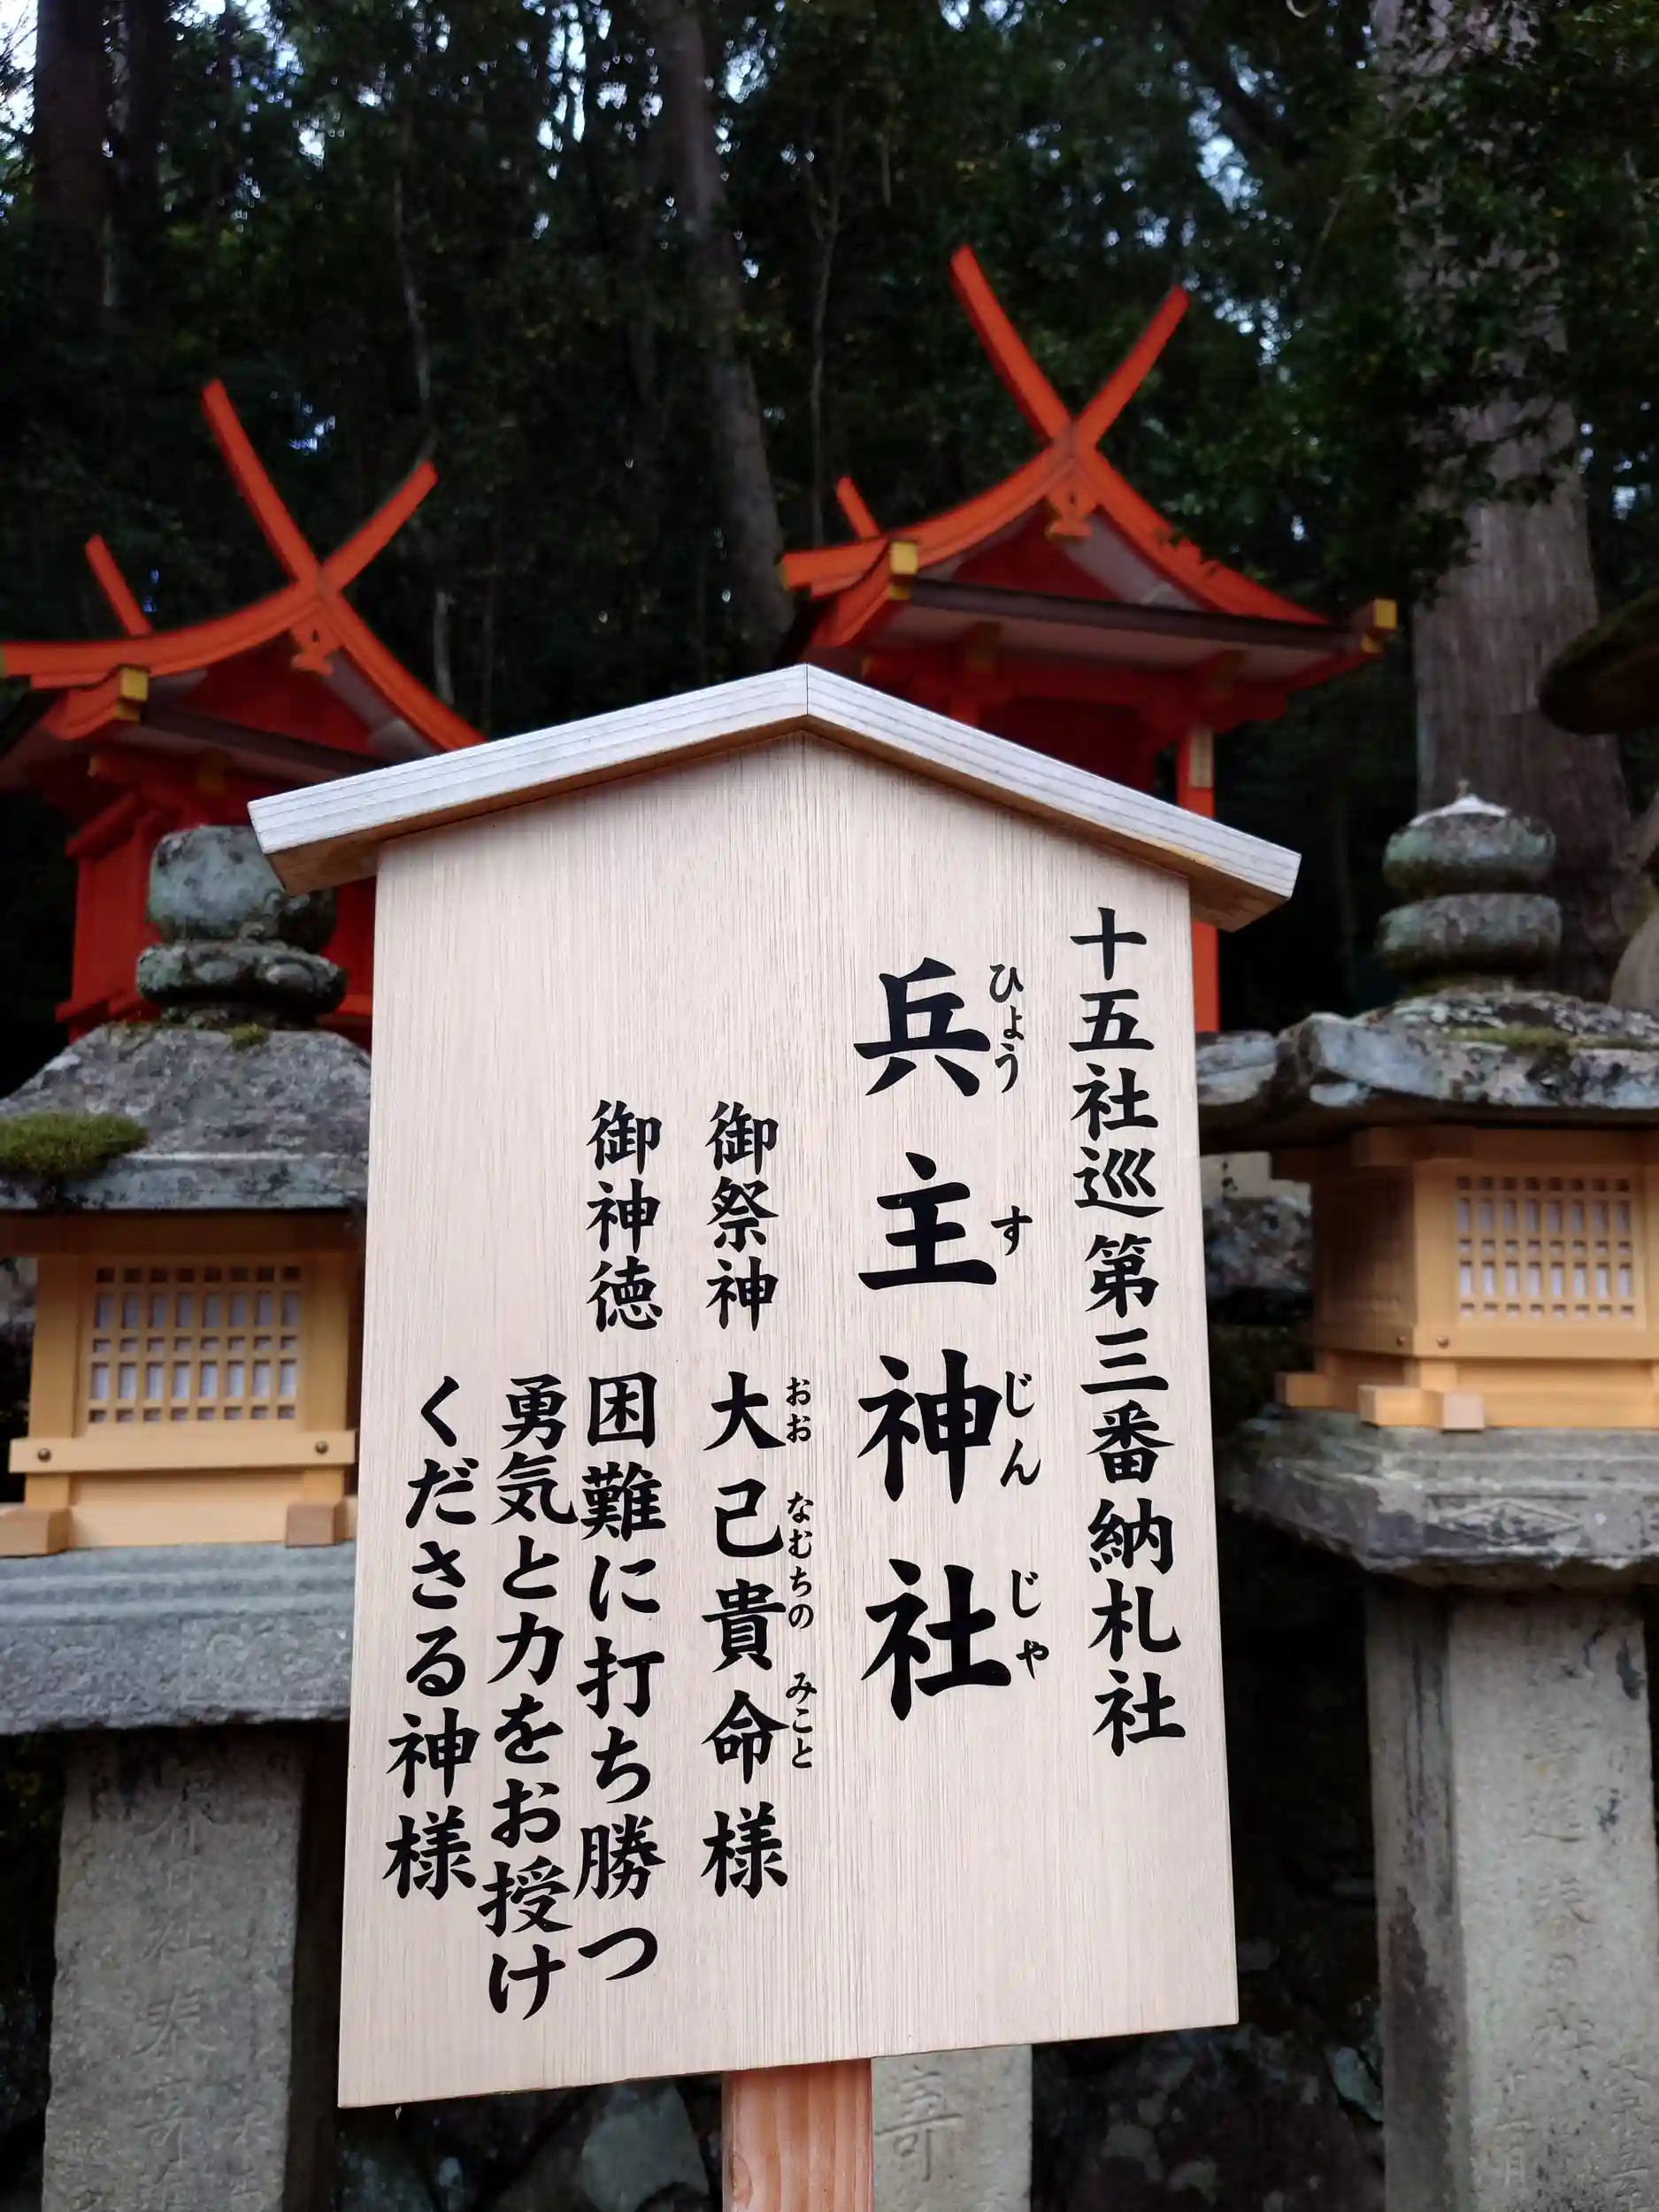 十五社巡第三番納札社
ひょうすじんじゃ
兵主神社
おおなむちのみこと
御祭神 大己貴命様
御神徳 困難に打ち勝つ
勇気と力をお授け
くださる神様